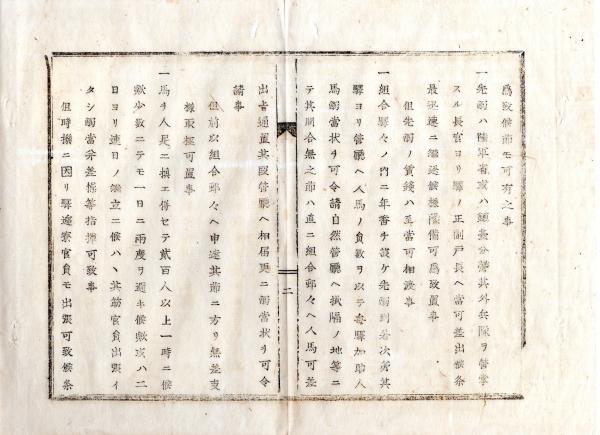 為致候節モ可有之事
一先觸ハ陸軍省或ハ鎮臺分營其外兵隊ヲ管掌
スル長官ヨリ驛ノ正副戸長ヘ當可差出候条
最迅速ニ繼送候様準備可為致置事
但先觸ノ賃錢ハ至當可相渡事
一組合驛々ノ内ニ年番ヲ設ケ先觸到着次第其
驛ヨリ管廳ヘ人馬ノ員數ヲ以テ毎驛加助人
馬觸當状ヲ可令請自然管廳ヘ掛隔ノ地等ニ
テ其間合無之節ハ直ニ組合郷々ヘ人馬可差
出旨通置其段管廳ヘ相届更ニ觸當状ヲ可令
請事
但前以組合郷々ヘ申達其節ニ方リ無差支
様取極可置事
一馬ヲ人足ニ換エ併セテ貳百人以上一時ニ候
歟少数ニテモ一日ニ兩度ヲ過キ候歟或ハ二
日ヨリ連日ノ繼立ニ候ハヽ其筋官員出張イ
タシ觸當并差操等指揮可致事
但時機ニ因リ驛遞寮官員モ出張可致候条
二